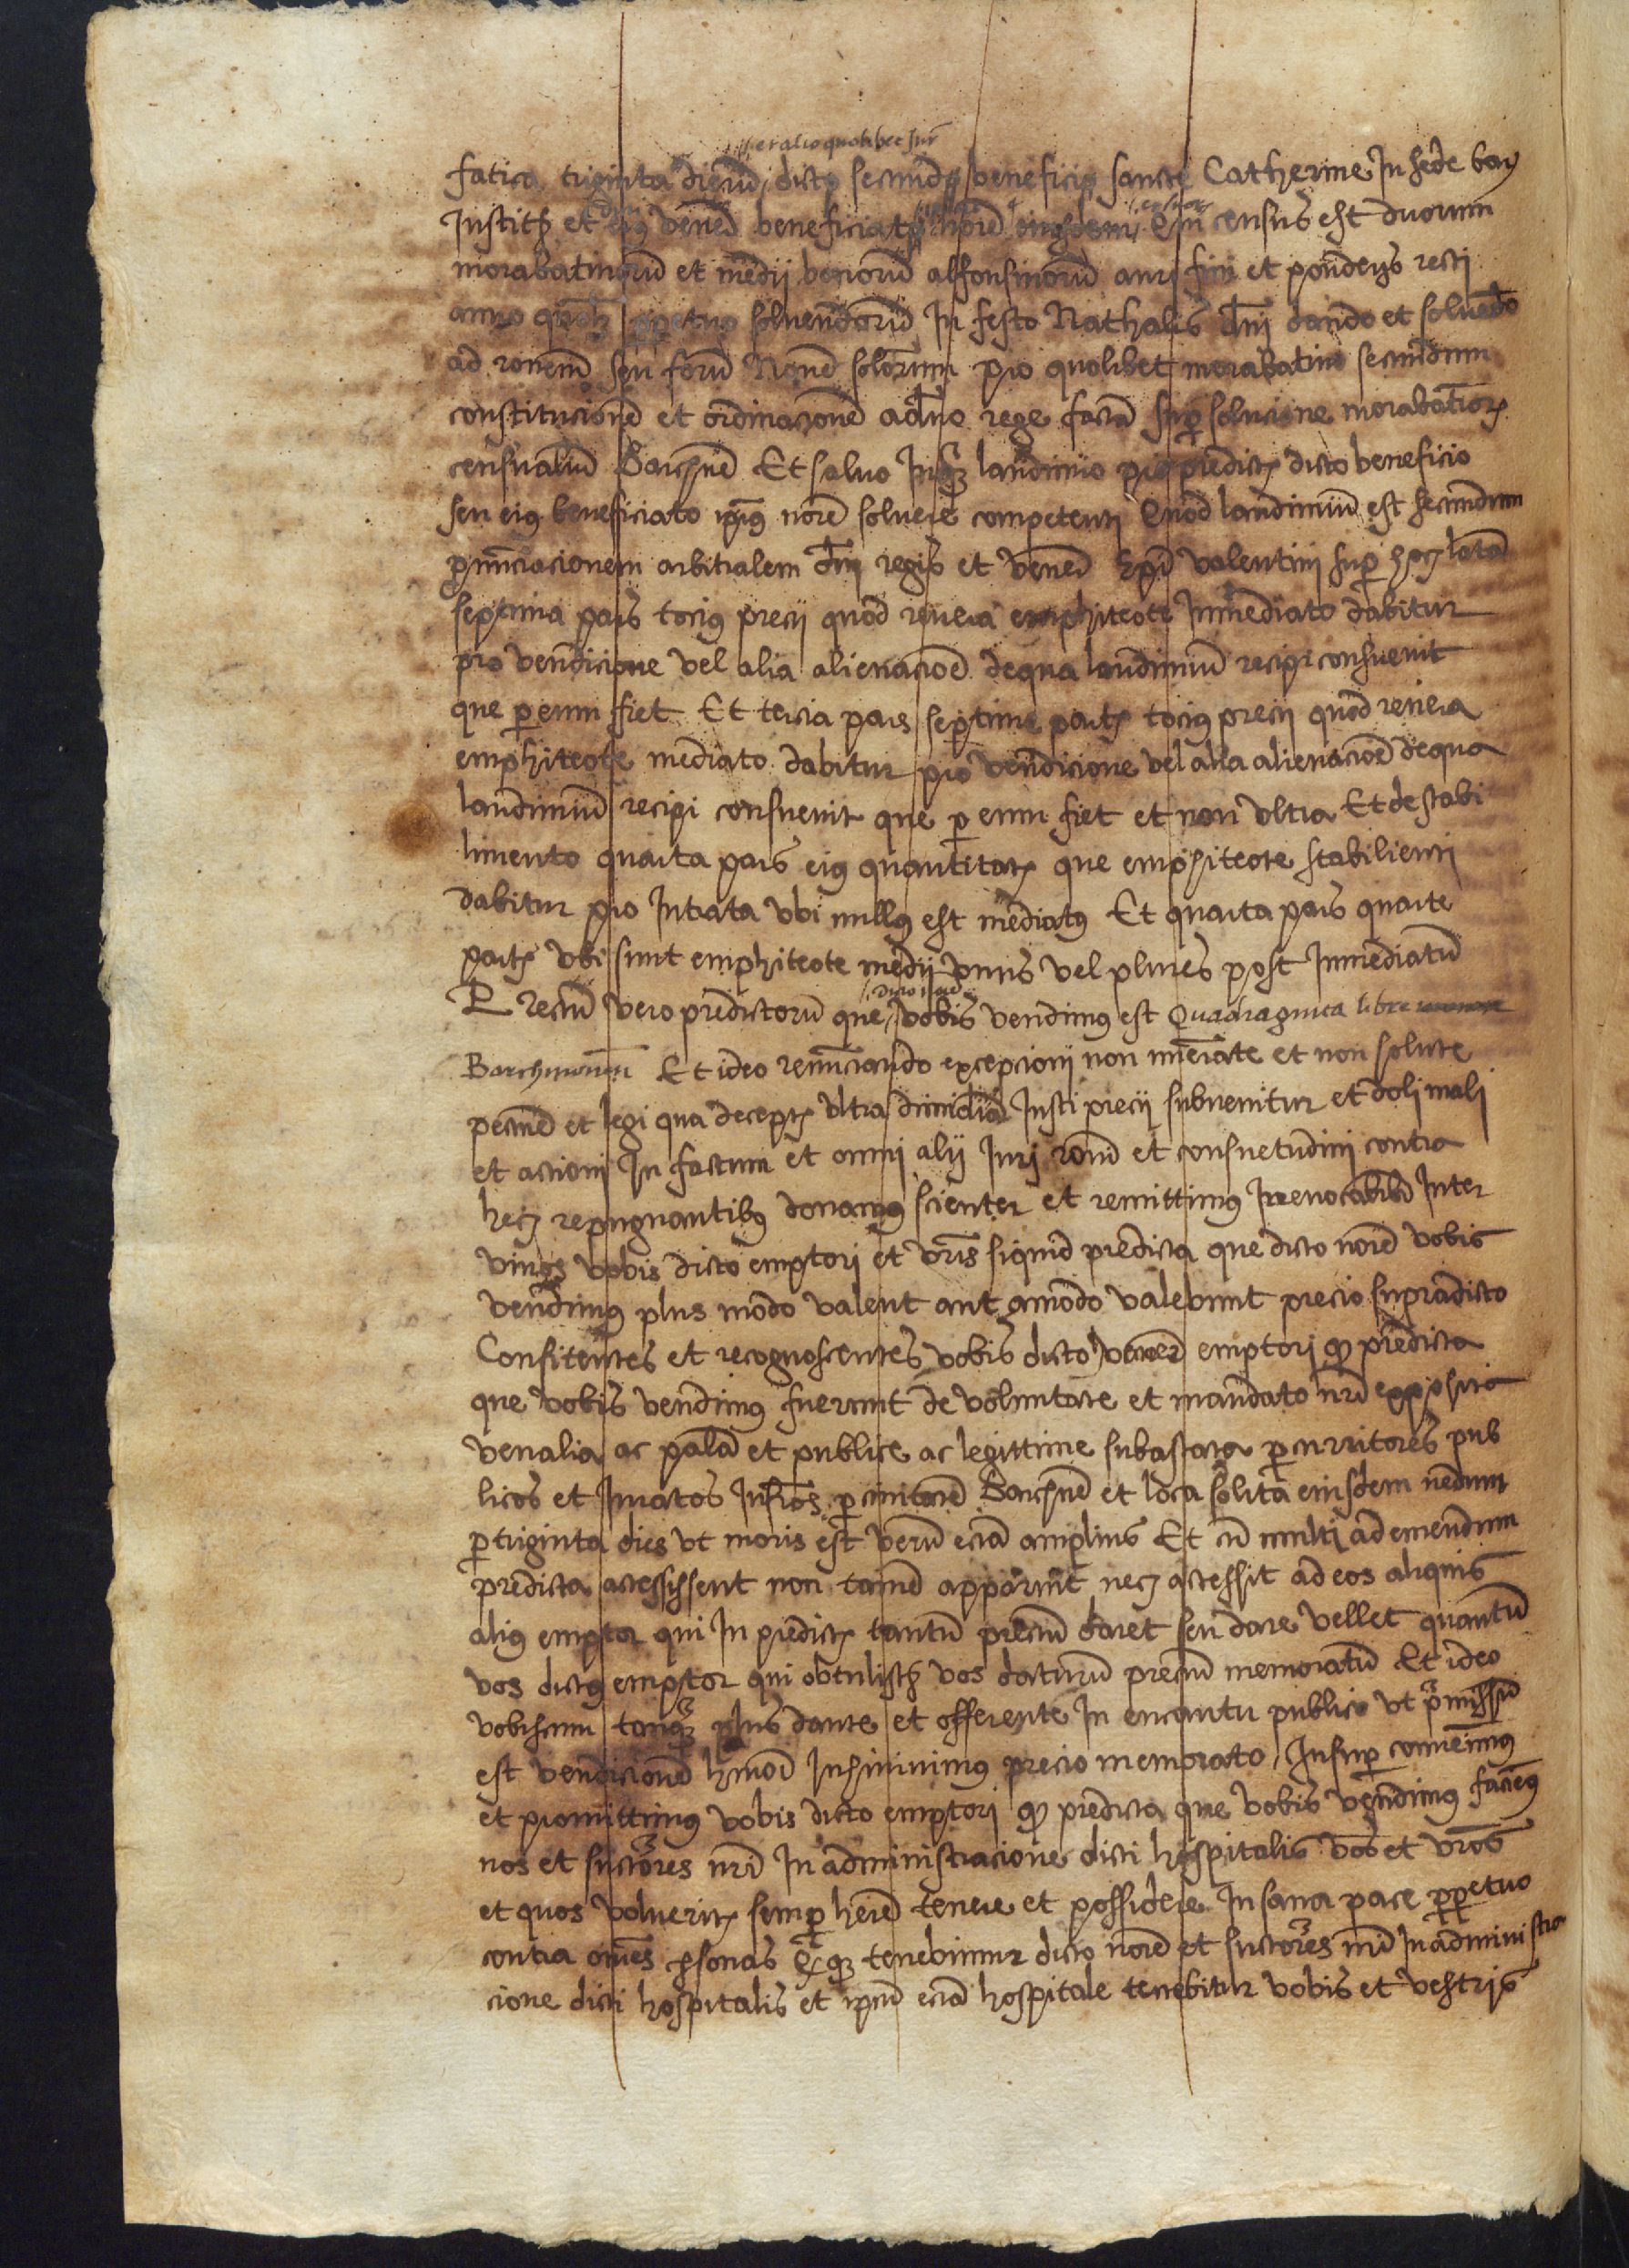 et alio quolibet jur̄
fatica triginta dierū dicto secundo beneficio sancte Catherine In sede bar̄
Institut̄ et eiꝰ veneī beneficiato noīe eiusdem Qui census est duorum
morabatinorū et medii bonorū alfonsinorū auri fini et ponderis recti
anno quolꝫ ꝑpetuo soluendorū In festo Nathalis dn̄i dando et soluēdo
ad roneꝫ seu forū Nouē solidorum pro quolibet morabatino secundum
constitucionē et ordinacionē a dn̄o rege factā suꝑ solucione morabatinorꝫ
censualiū Barchn̄e Et saluo Insuꝑ laudimio pro predictꝭ dicto beneficio
seu eiꝰ beneficiato ip̄iꝰ noīe soluere competenti Quod laudimiū est secundum
ꝓnūciacionem arbitralem dn̄i regis et veneī Ep̄i valentini suꝑ hoc latā
septima pars tociꝰ precii quod reuera emphiteote Inmediato dabitur
pro vendicione vel alia alienacioē de qua laudimiū recipi consueuit
que ꝑ eum fiet Et tercia pars septime partꝭ tociꝰ precii quod reuera
emphiteote mediato dabitur pro vendicione vel alia alienacioē de qua
laudimiū recipi consueuit que ꝑ eum fiet et non vltra Et de stabi
limento quarta pars eiꝰ quantitatꝭ que emphiteote stabilienti
dabitur pro Intrata vbi nullꝰ est mediatꝰ Et quarta pars quarte
partꝭ vbi sunt emphiteote medii vnus vel plures post Inmediatū
dicto noīe
Precīu vero predictorū que vobis vendimꝰ est Quadraginta libre
Barchinonēn Et ideo renūciando excepcioni non nūerate et non solute
pecūie et legi qua deceptꝭ vltra dimidiā Iusti precii subuenitur et doli mali
et actioni In factum et omni alii Iuri roni et consuetudini contra
hec repugnantibꝰ donamꝰ scienter et remittimꝰ Irreuocabilit̄ Inter
viuos vobis dicto emptori et vr̄is siquid predicta que dicto noīe vobis
vendimꝰ plus modo valent aut amodo valebunt precio supradicto
Confitentes et recognoscentes vobis dicto emptori ꝙ predicta
que vobis vendimꝰ fuerunt de voluntate et mandato nr̄i exposita
venalia ac palā et publice ac legittime subastata ꝑ curritores pub
licos et Iuratos Infros ꝑ ciuitatē Barchn̄e et loca solita eiusdem nedum
ꝑ triginta dies vt moris est verū eciā amplius Et cū multi ad emendum
predicta accessissent non tamē apparuit nec accessit ad eos aliquis
aliꝰ emptor qui In predictꝭ tantū preciū daret seu dare vellet quantū
vos dictꝰ emptor qui obtulistꝭ vos daturū preciū memoratū Et ideo
vobiscum tanqꝫ plus dante et offerente In encantu publico vt p̄missū
est vendicionē hmōi Insinuimꝰ precio memorato Insuꝑ conuenimꝰ
et promittimꝰ vobis dicto emptori ꝙ predicta que vobis vendimꝰ faciemꝰ
nos et suctōres nr̄i In administracione dicti hospitalis vos et vr̄os
et quos voluerit̄ semꝑ hēre tenere et possidere In sana pace ꝑpetuo
contra om̄es ꝑsonas Et ꝙ tenebimur dicto noīe et suctōres nr̄i In administra
cione dicti hospitalis et ip̄m eciā hospitale tenebitur vobis et vestris